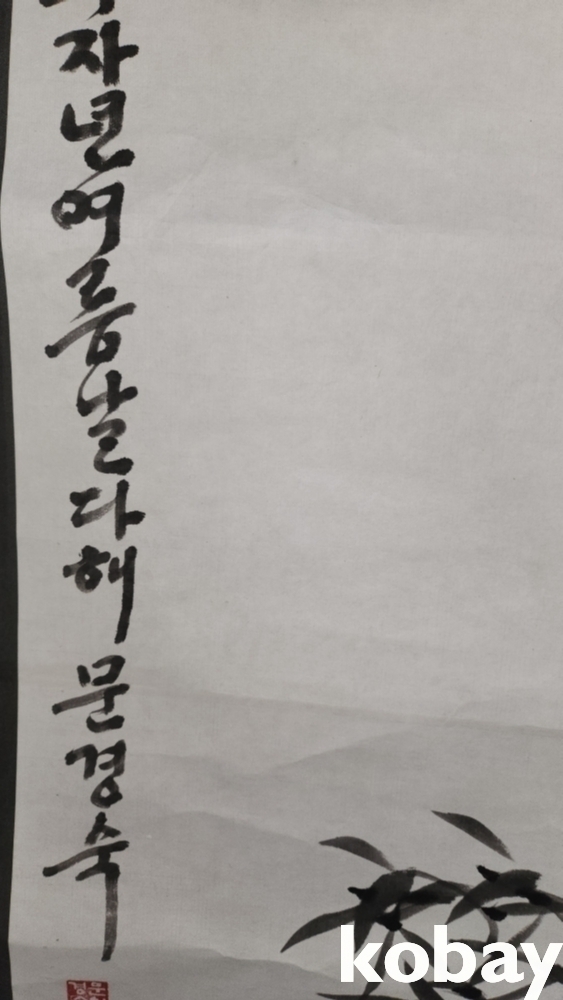 자년여름날다해문경숙
kobay